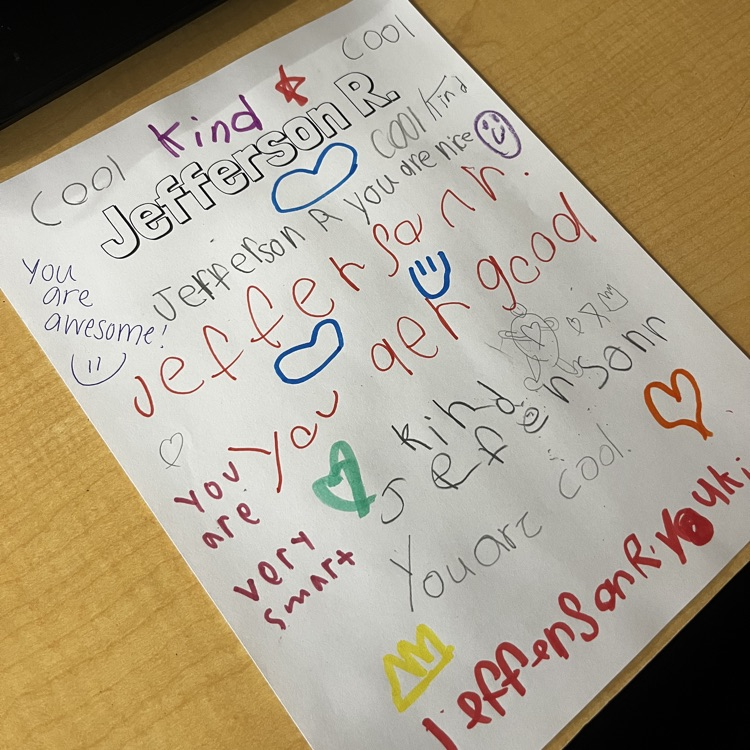 cool
Kind
cool
Jefferson R.
cool kind
Jefferson R you are nice
You
are
awesome!
Jeffersonr.
You aer good
kind
Jeffersonr
You are cool.
you
are
very
smart
Jefferson R. you ki